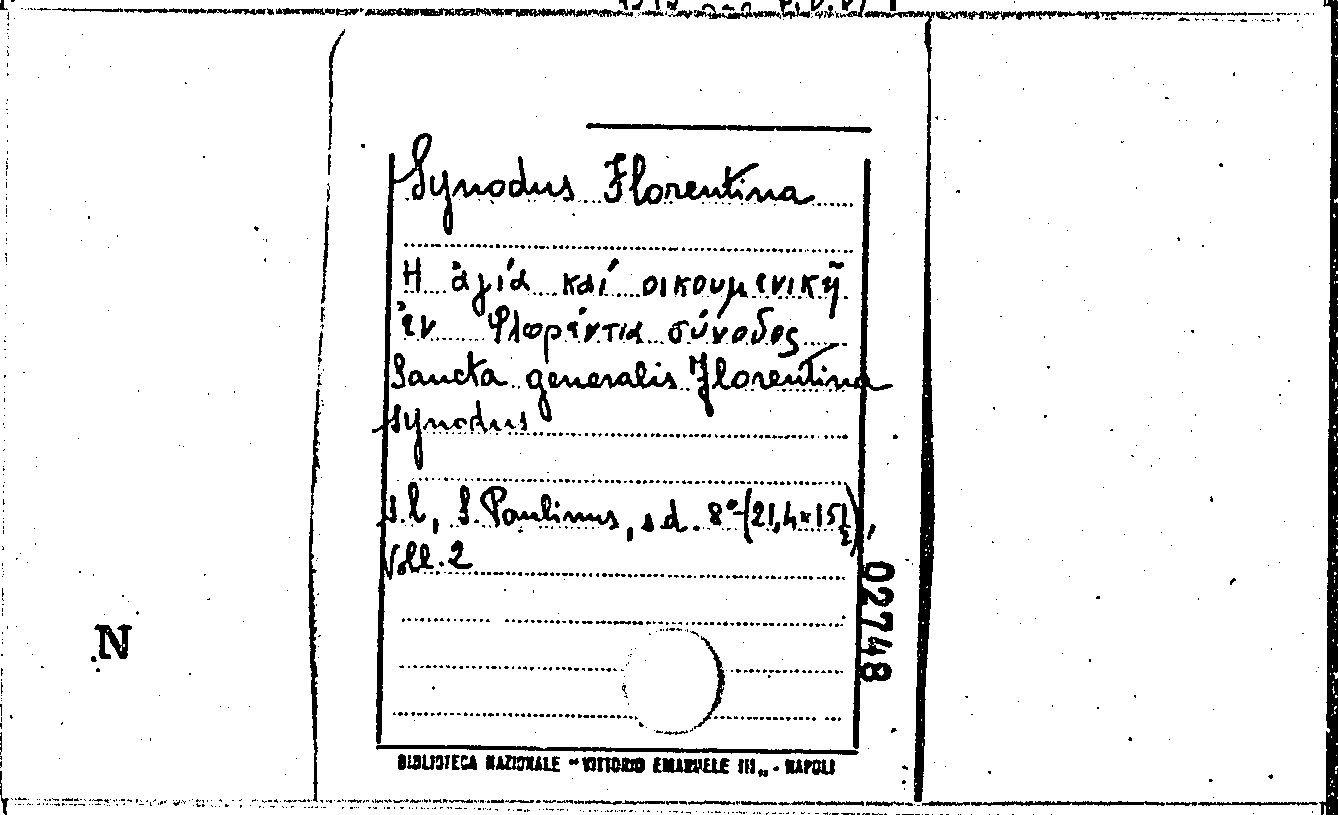 Synodus Florentina
Η ἁγία καί οικουμενικῆ
ἐν Φλωρέντια σύνοδος
Sancta generalis Florentina
synodus
s.l, S. Paulinus, s.d. 8° (21,4x15½),
Voll. 2
02748
N
BIBLIOTECA NAZIONALE "VITTORIO EMANUELE III„ - NAPOLI